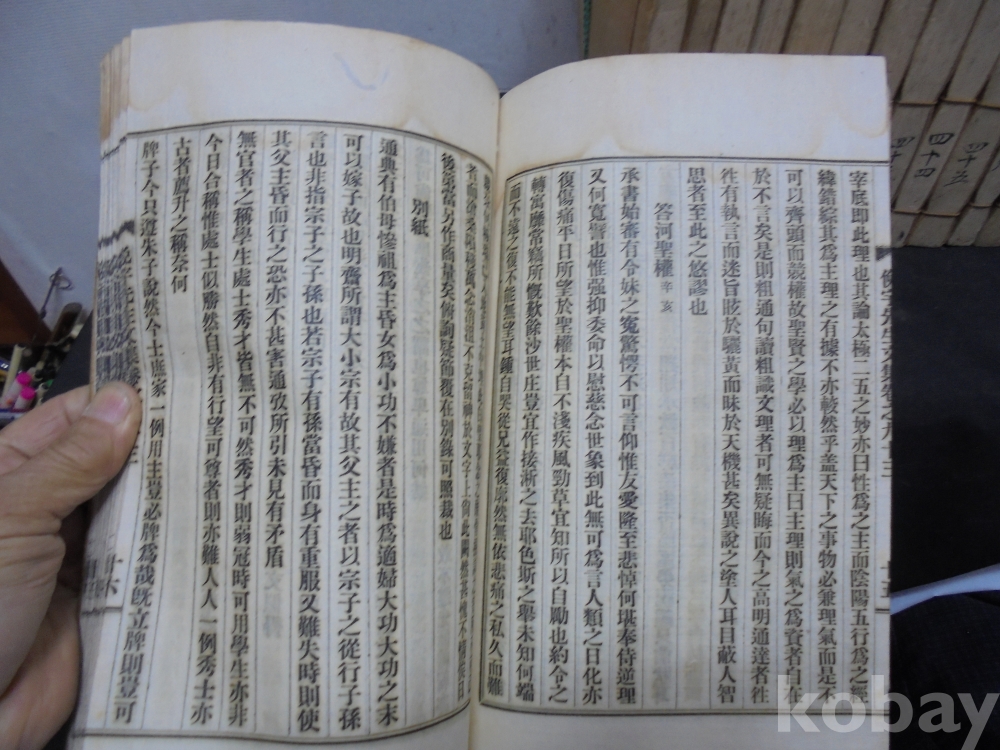 宰底即此理也其論太極二五之妙亦曰性爲之主而陰陽五行爲之經
緯錯綜其爲主理之有據不亦較然乎盖天下之事物必兼理氣而是不
可以齊頭而競權故聖賢之學必以理爲主曰主理則氣之爲資者自在
於不言矣是則粗通句讀粗識文理者可無疑晦而今之高明通達者徃
徃有執言而迷旨眩於驪黃而昧於天機甚矣異說之塗人耳目蔽人智
思者至此之悠謬也
答河聖權 辛亥
承書始審有令妹之寃驚愕不可言仰惟友愛隆至悲悼何堪奉侍逆理
又何寬譬也惟强抑委命以慰慈念世象到此無可爲言人類之日化亦
復傷痛平日所望於聖權本自不淺疾風勁草宜知所以自勵也約令之
轉寓靡常竊所慨歎餘沙世庄豈宜作接淅之去耶色斯之擧未知何端
而不遠之復不能無望耳鍾自哭從兄益復廓然無依悲痛之私久而難
後染當另作商量矣俯詢疑節覆在別錄可照裁也
別紙
通典有伯母慘祖爲主昏女爲小功不嫌者是時爲適婦大功大功之末
可以嫁子故也明齋所謂大小宗有故其父主之者以宗子之從行子孫
言也非指宗子之子孫也若宗子有孫當昏而身有重服又難失時則使
其父主昏而行之恐亦不甚害通攷所引未見有矛盾
無官者之稱學生處士秀才皆無不可然秀才則弱冠時可用學生亦非
今日合稱惟處士似勝然自非有行望可尊者則亦難人人一例秀士亦
古者薦升之稱奈何
牌子今只遵朱子說然今士庶家一例用主豈必牌爲哉旣立牌則豈可
十五
十六
四十四
四十五
kobay